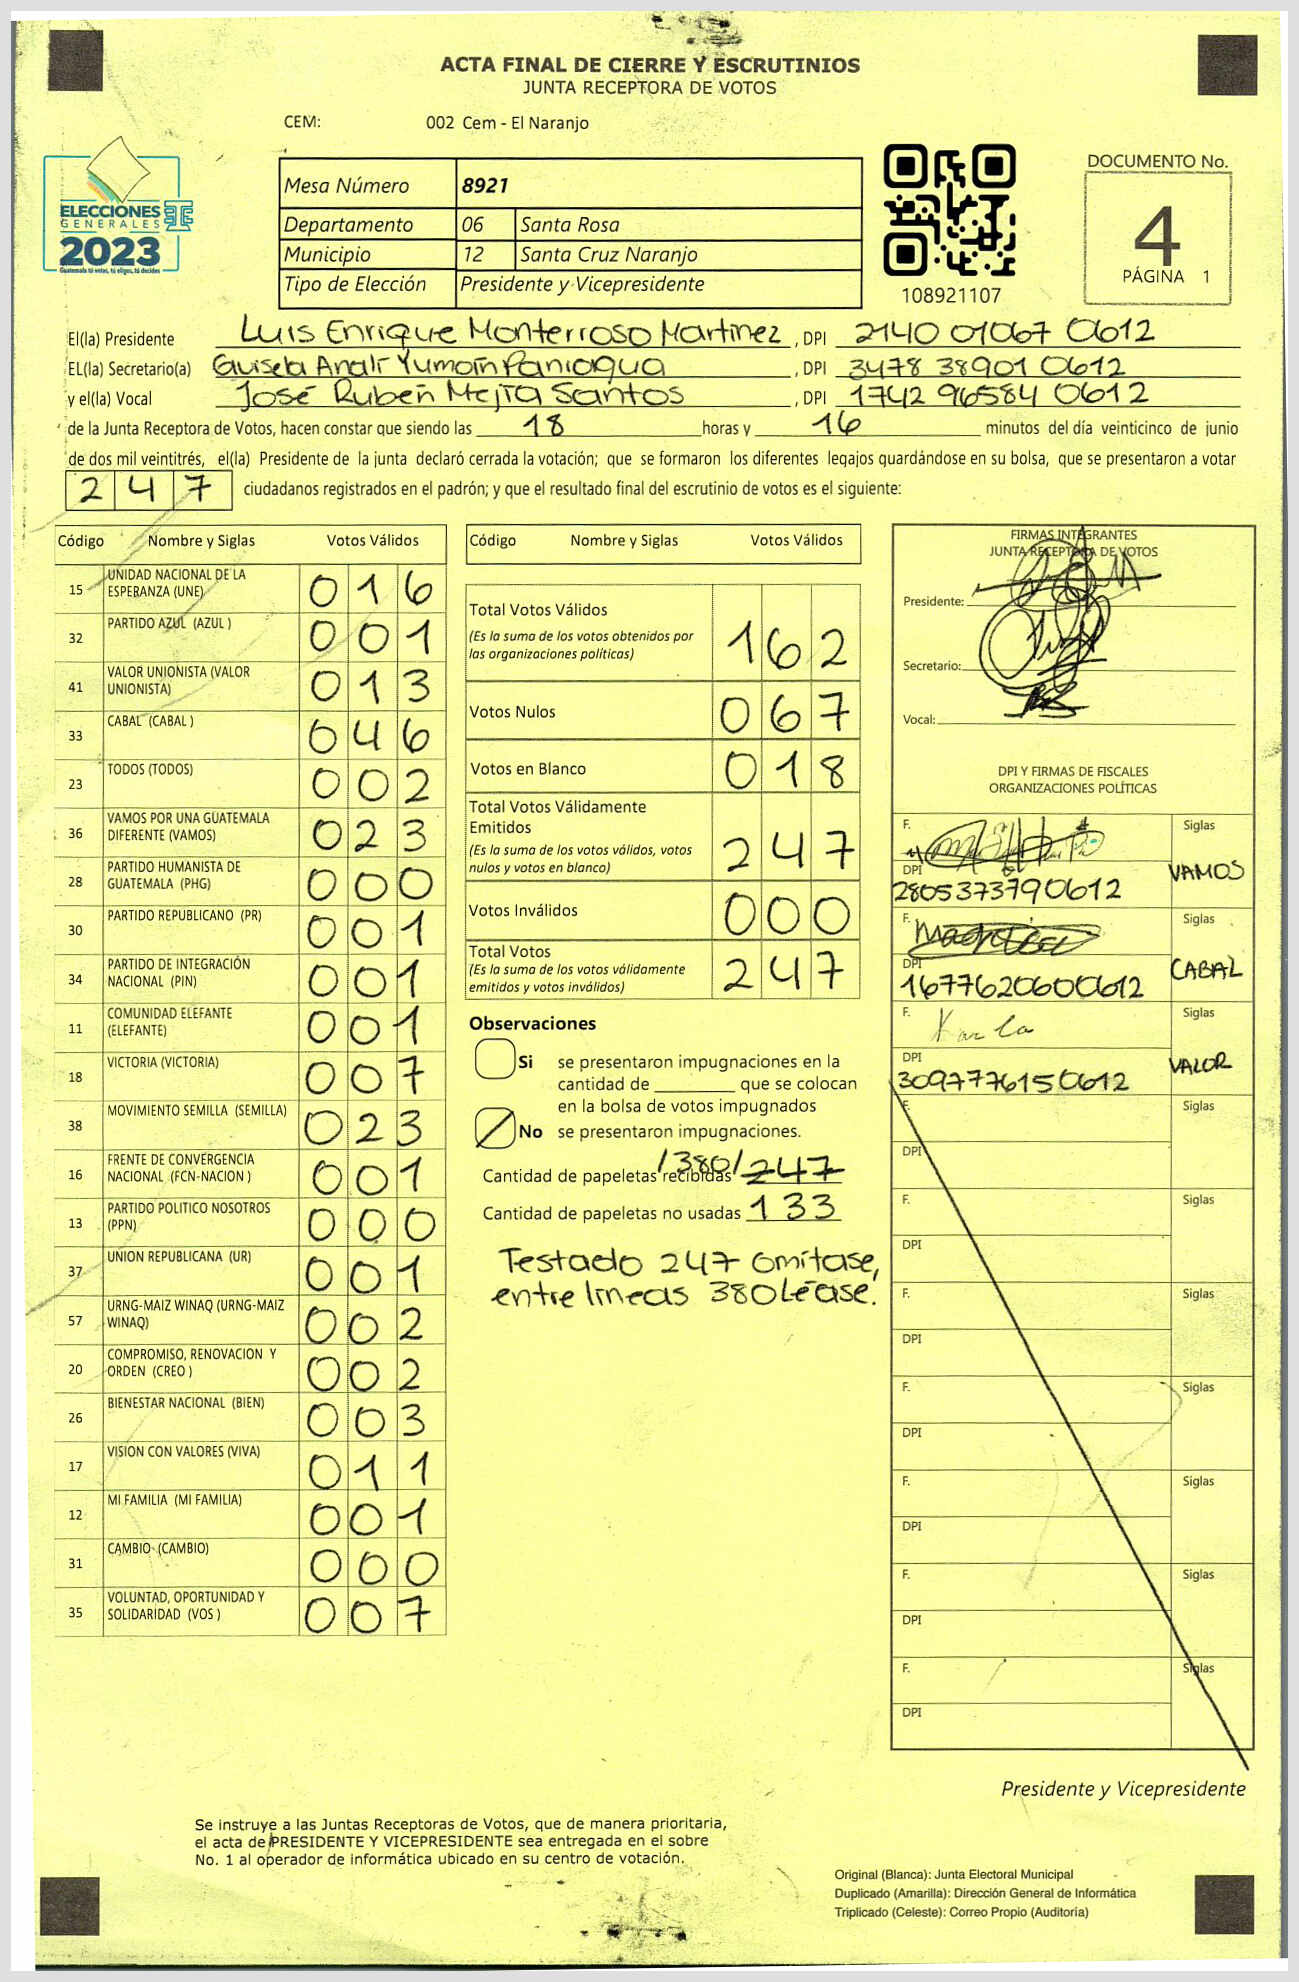 ACTA FINAL DE CIERRE Y ESCRUTINIOS
JUNTA RECEPTORA DE VOTOS
CEM: 002 Cem - El Naranjo
ELECCIONES
GENERALES
2023
Guatemala tú votas, tú eliges, tú decides
Mesa Número 8921
Departamento 06 Santa Rosa
Municipio 12 Santa Cruz Naranjo
Tipo de Elección Presidente y Vicepresidente
108921107
DOCUMENTO No.
4
PÁGINA 1
El(la) Presidente Luis Enrique Monterroso Martínez, DPI 2140 01067 0612
EL(la) Secretario(a) Guisela Analí Yumán Paniagua, DPI 3478 38901 0612
y el(la) Vocal José Rubén Mejía Santos, DPI 1742 96584 0612
de la Junta Receptora de Votos, hacen constar que siendo las 18 horas y 16 minutos del día veinticinco de junio
de dos mil veintitrés, el(la) Presidente de la junta declaró cerrada la votación; que se formaron los diferentes legajos guardándose en su bolsa, que se presentaron a votar
247 ciudadanos registrados en el padrón; y que el resultado final del escrutinio de votos es el siguiente:
Código Nombre y Siglas Votos Válidos
15 UNIDAD NACIONAL DE LA ESPERANZA (UNE) 016
32 PARTIDO AZUL (AZUL ) 001
41 VALOR UNIONISTA (VALOR UNIONISTA) 013
33 CABAL (CABAL ) 046
23 TODOS (TODOS) 002
36 VAMOS POR UNA GUATEMALA DIFERENTE (VAMOS) 023
28 PARTIDO HUMANISTA DE GUATEMALA (PHG) 000
30 PARTIDO REPUBLICANO (PR) 001
34 PARTIDO DE INTEGRACIÓN NACIONAL (PIN) 001
11 COMUNIDAD ELEFANTE (ELEFANTE) 001
18 VICTORIA (VICTORIA) 007
38 MOVIMIENTO SEMILLA (SEMILLA) 023
16 FRENTE DE CONVERGENCIA NACIONAL (FCN-NACION ) 001
13 PARTIDO POLITICO NOSOTROS (PPN) 000
37 UNION REPUBLICANA (UR) 001
57 URNG-MAIZ WINAQ (URNG-MAIZ WINAQ) 002
20 COMPROMISO, RENOVACION Y ORDEN (CREO ) 002
26 BIENESTAR NACIONAL (BIEN) 003
17 VISION CON VALORES (VIVA) 011
12 MI FAMILIA (MI FAMILIA) 001
31 CAMBIO (CAMBIO) 000
35 VOLUNTAD, OPORTUNIDAD Y SOLIDARIDAD (VOS ) 007
Código Nombre y Siglas Votos Válidos
Total Votos Válidos 162
(Es la suma de los votos obtenidos por
las organizaciones políticas)
Votos Nulos 067
Votos en Blanco 018
Total Votos Válidamente
Emitidos 247
(Es la suma de los votos válidos, votos
nulos y votos en blanco)
Votos Inválidos 000
Total Votos 247
(Es la suma de los votos válidamente
emitidos y votos inválidos)
Observaciones
Si se presentaron impugnaciones en la
cantidad de ________ que se colocan
en la bolsa de votos impugnados
No se presentaron impugnaciones.
Cantidad de papeletas recibidas /380/ 247
Cantidad de papeletas no usadas 133
Testado 247 omítase,
entre líneas 380 Léase.
FIRMAS INTEGRANTES
JUNTA RECEPTORA DE VOTOS
Presidente:
Secretario:
Vocal:
DPI Y FIRMAS DE FISCALES
ORGANIZACIONES POLÍTICAS
F. Siglas
DPI 2805373790612 VAMOS
F. Siglas
DPI 1677620600612 CABAL
F. Karla Siglas
DPI 3097776150612 VALOR
F. Siglas
DPI
F. Siglas
DPI
F. Siglas
DPI
F. Siglas
DPI
F. Siglas
DPI
F. Siglas
DPI
F. Siglas
DPI
Presidente y Vicepresidente
Se instruye a las Juntas Receptoras de Votos, que de manera prioritaria,
el acta de PRESIDENTE Y VICEPRESIDENTE sea entregada en el sobre
No. 1 al operador de informática ubicado en su centro de votación.
Original (Blanca): Junta Electoral Municipal
Duplicado (Amarilla): Dirección General de Informática
Triplicado (Celeste): Correo Propio (Auditoría)